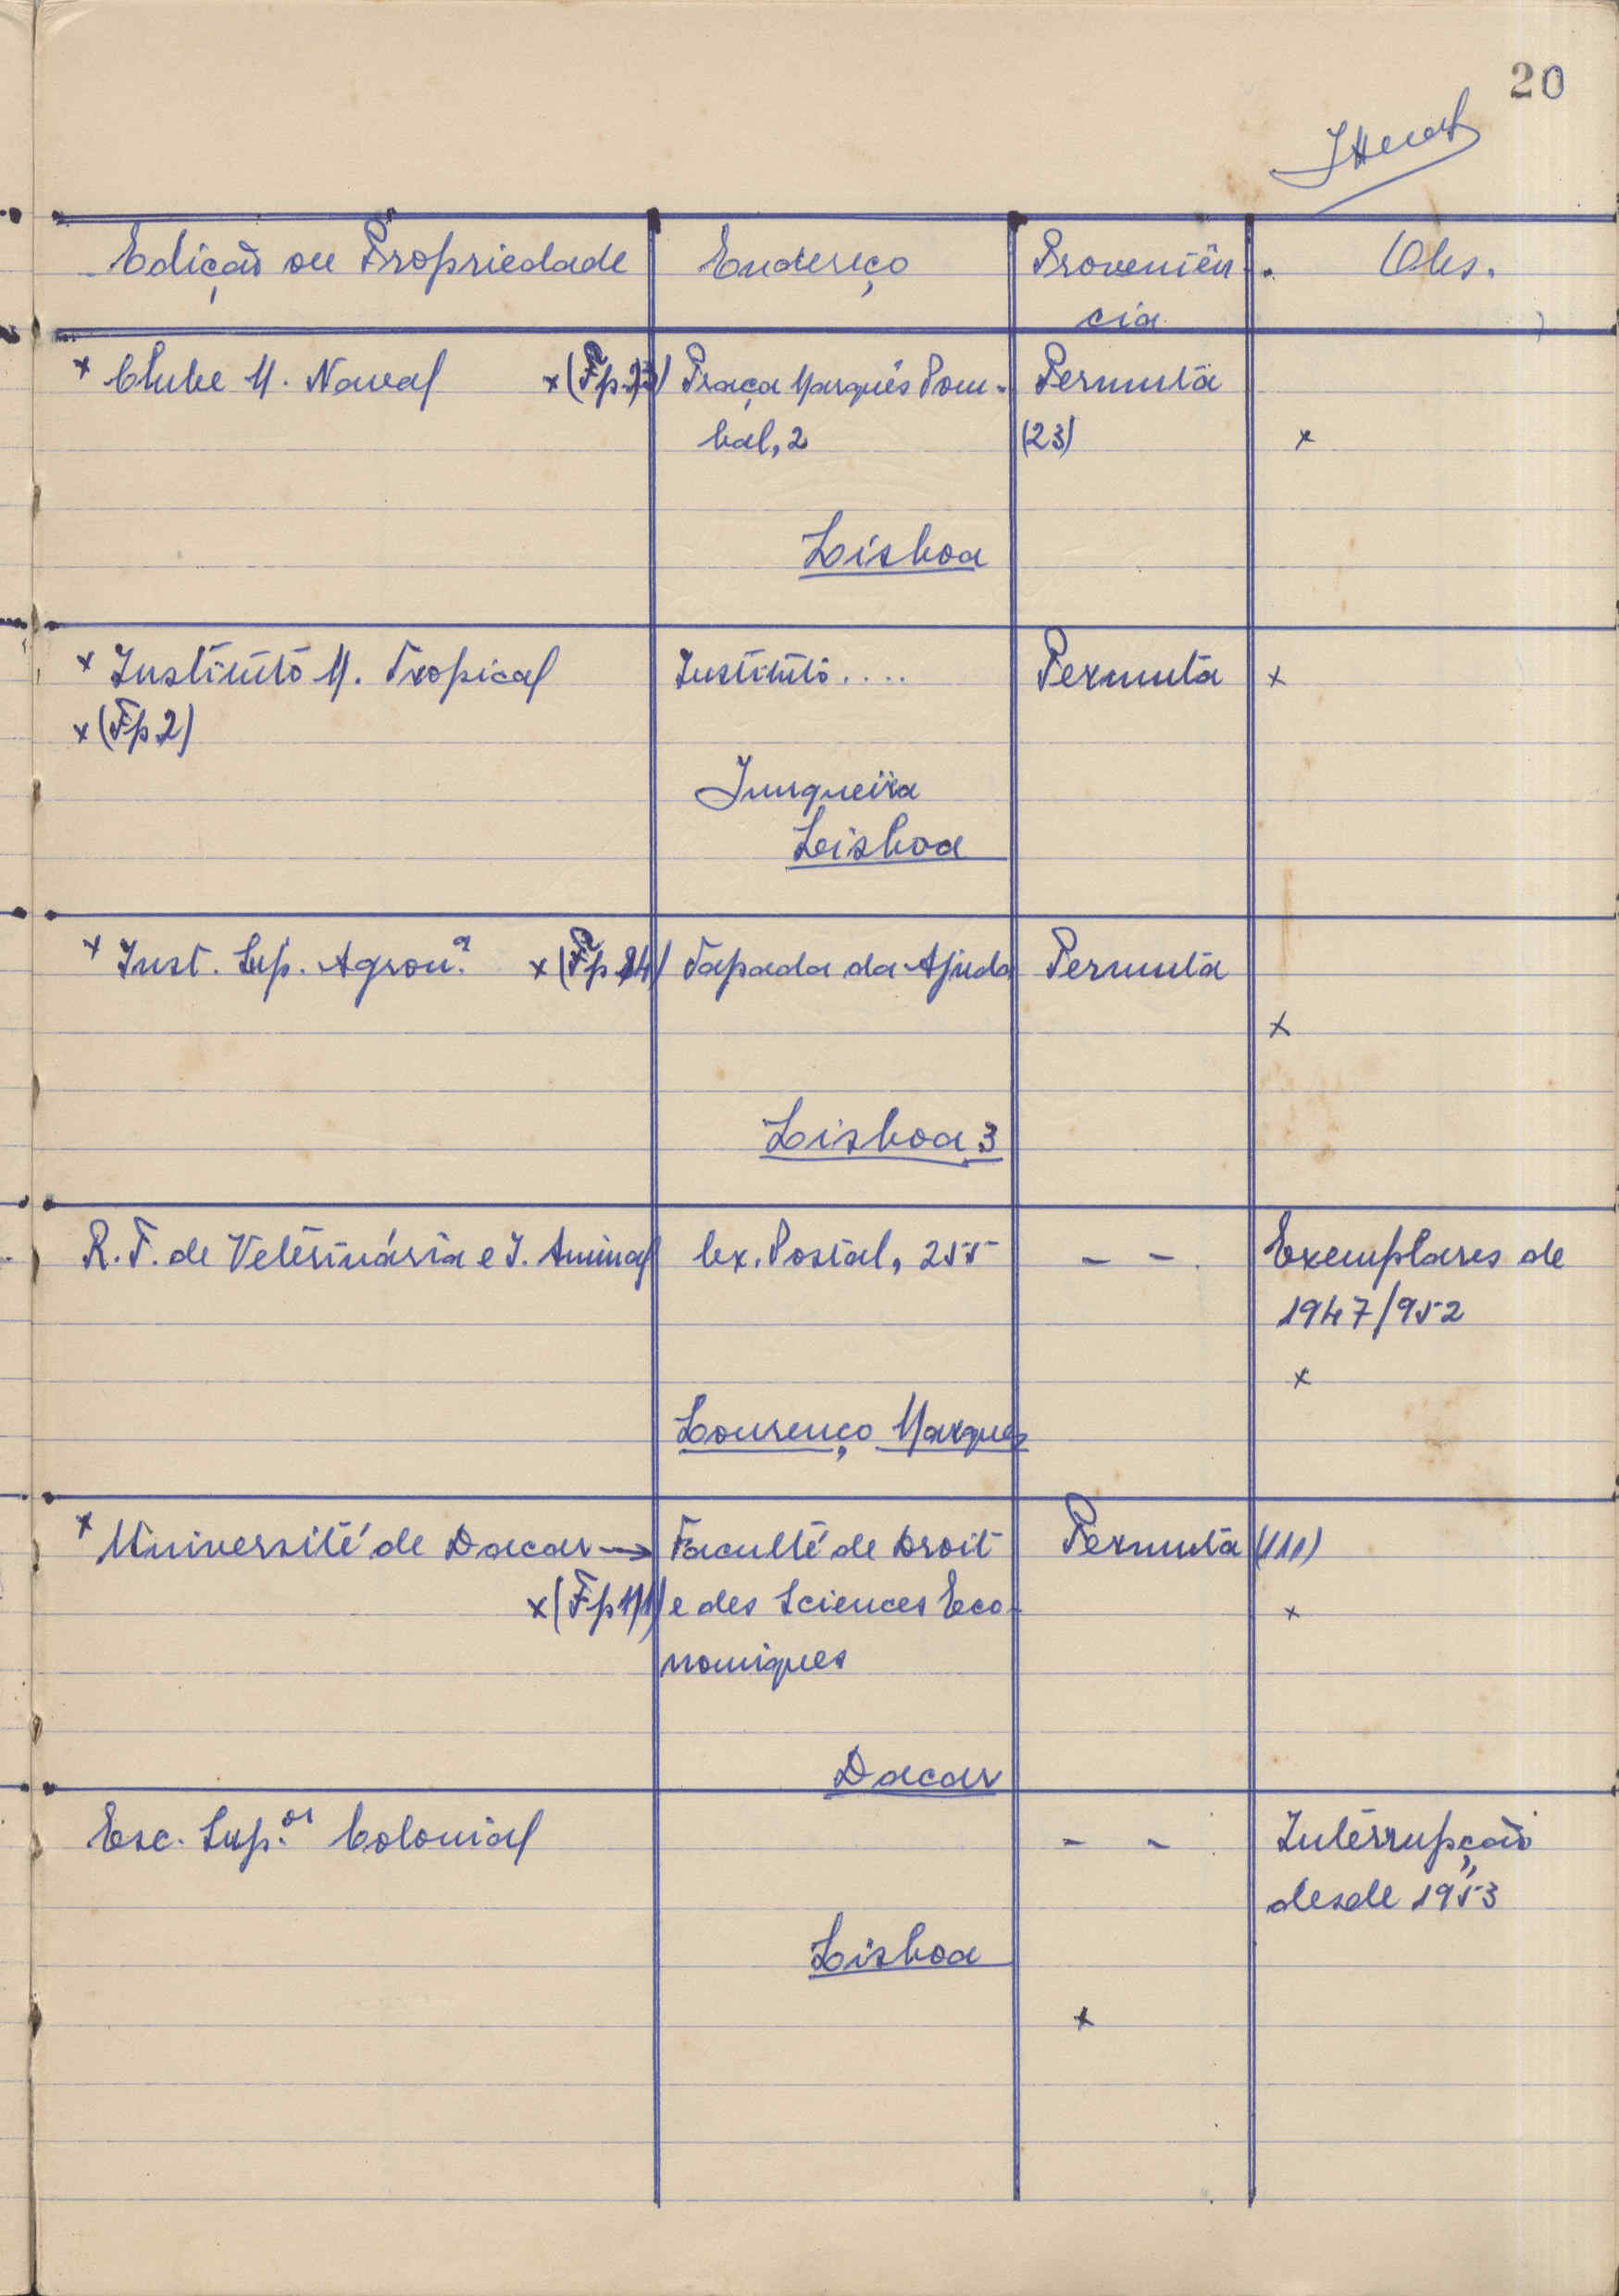 20
Edição ou Propriedade Endereço Proveniên- Obs.
cia
x Clube M. Naval x (Fp 23) Praça Marquês Pom-
bal, 2
Permuta
(23) x
Lisboa
x Instituto M. Tropical Instituto.... Permuta x
x (Fp 2)
Junqueira
Lisboa
x Inst. Sup. Agron.ª x (Fp 24) Tapada da Ajuda Permuta
x
Lisboa 3
R. T. de Veterinária e I. Animal Cx. Postal, 255 - - Exemplares de
1947/952
x
Lourenço Marques
x Université de Dacar → Faculté de Droit Permuta (111)
x (Fp 111) e des Sciences Eco- x
nomiques
Dacar
Esc. Sup.or Colonial - - Interrupção
desde 1953
Lisboa
x